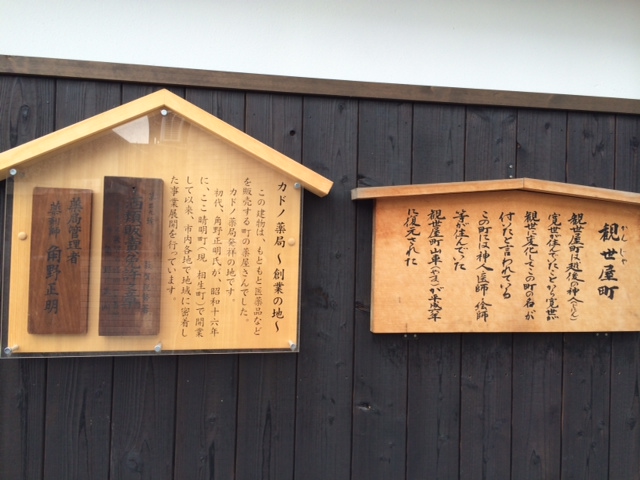 観世屋町
かんじゃ
観世屋町は越後の神人(じにん)
寛世が住んでいたことから寛世が
観世に変化してこの町の名が
付いたと言われている
この町には神人・医師・絵師
等が住んでいた
観世屋町山車(やま)が平成六年
に復元された
カドノ薬局〜創業の地〜
この建物は、もともと医薬品など
を販売する町の薬屋さんでした。
カドノ薬局発祥の地です。
初代、角野正明氏が、昭和十六年
に、ここ晴明町(現 相生町)で開業
して以来、市内各地で地域に密着し
た事業展開を行っています。
薬局管理者
薬剤師 角野正明